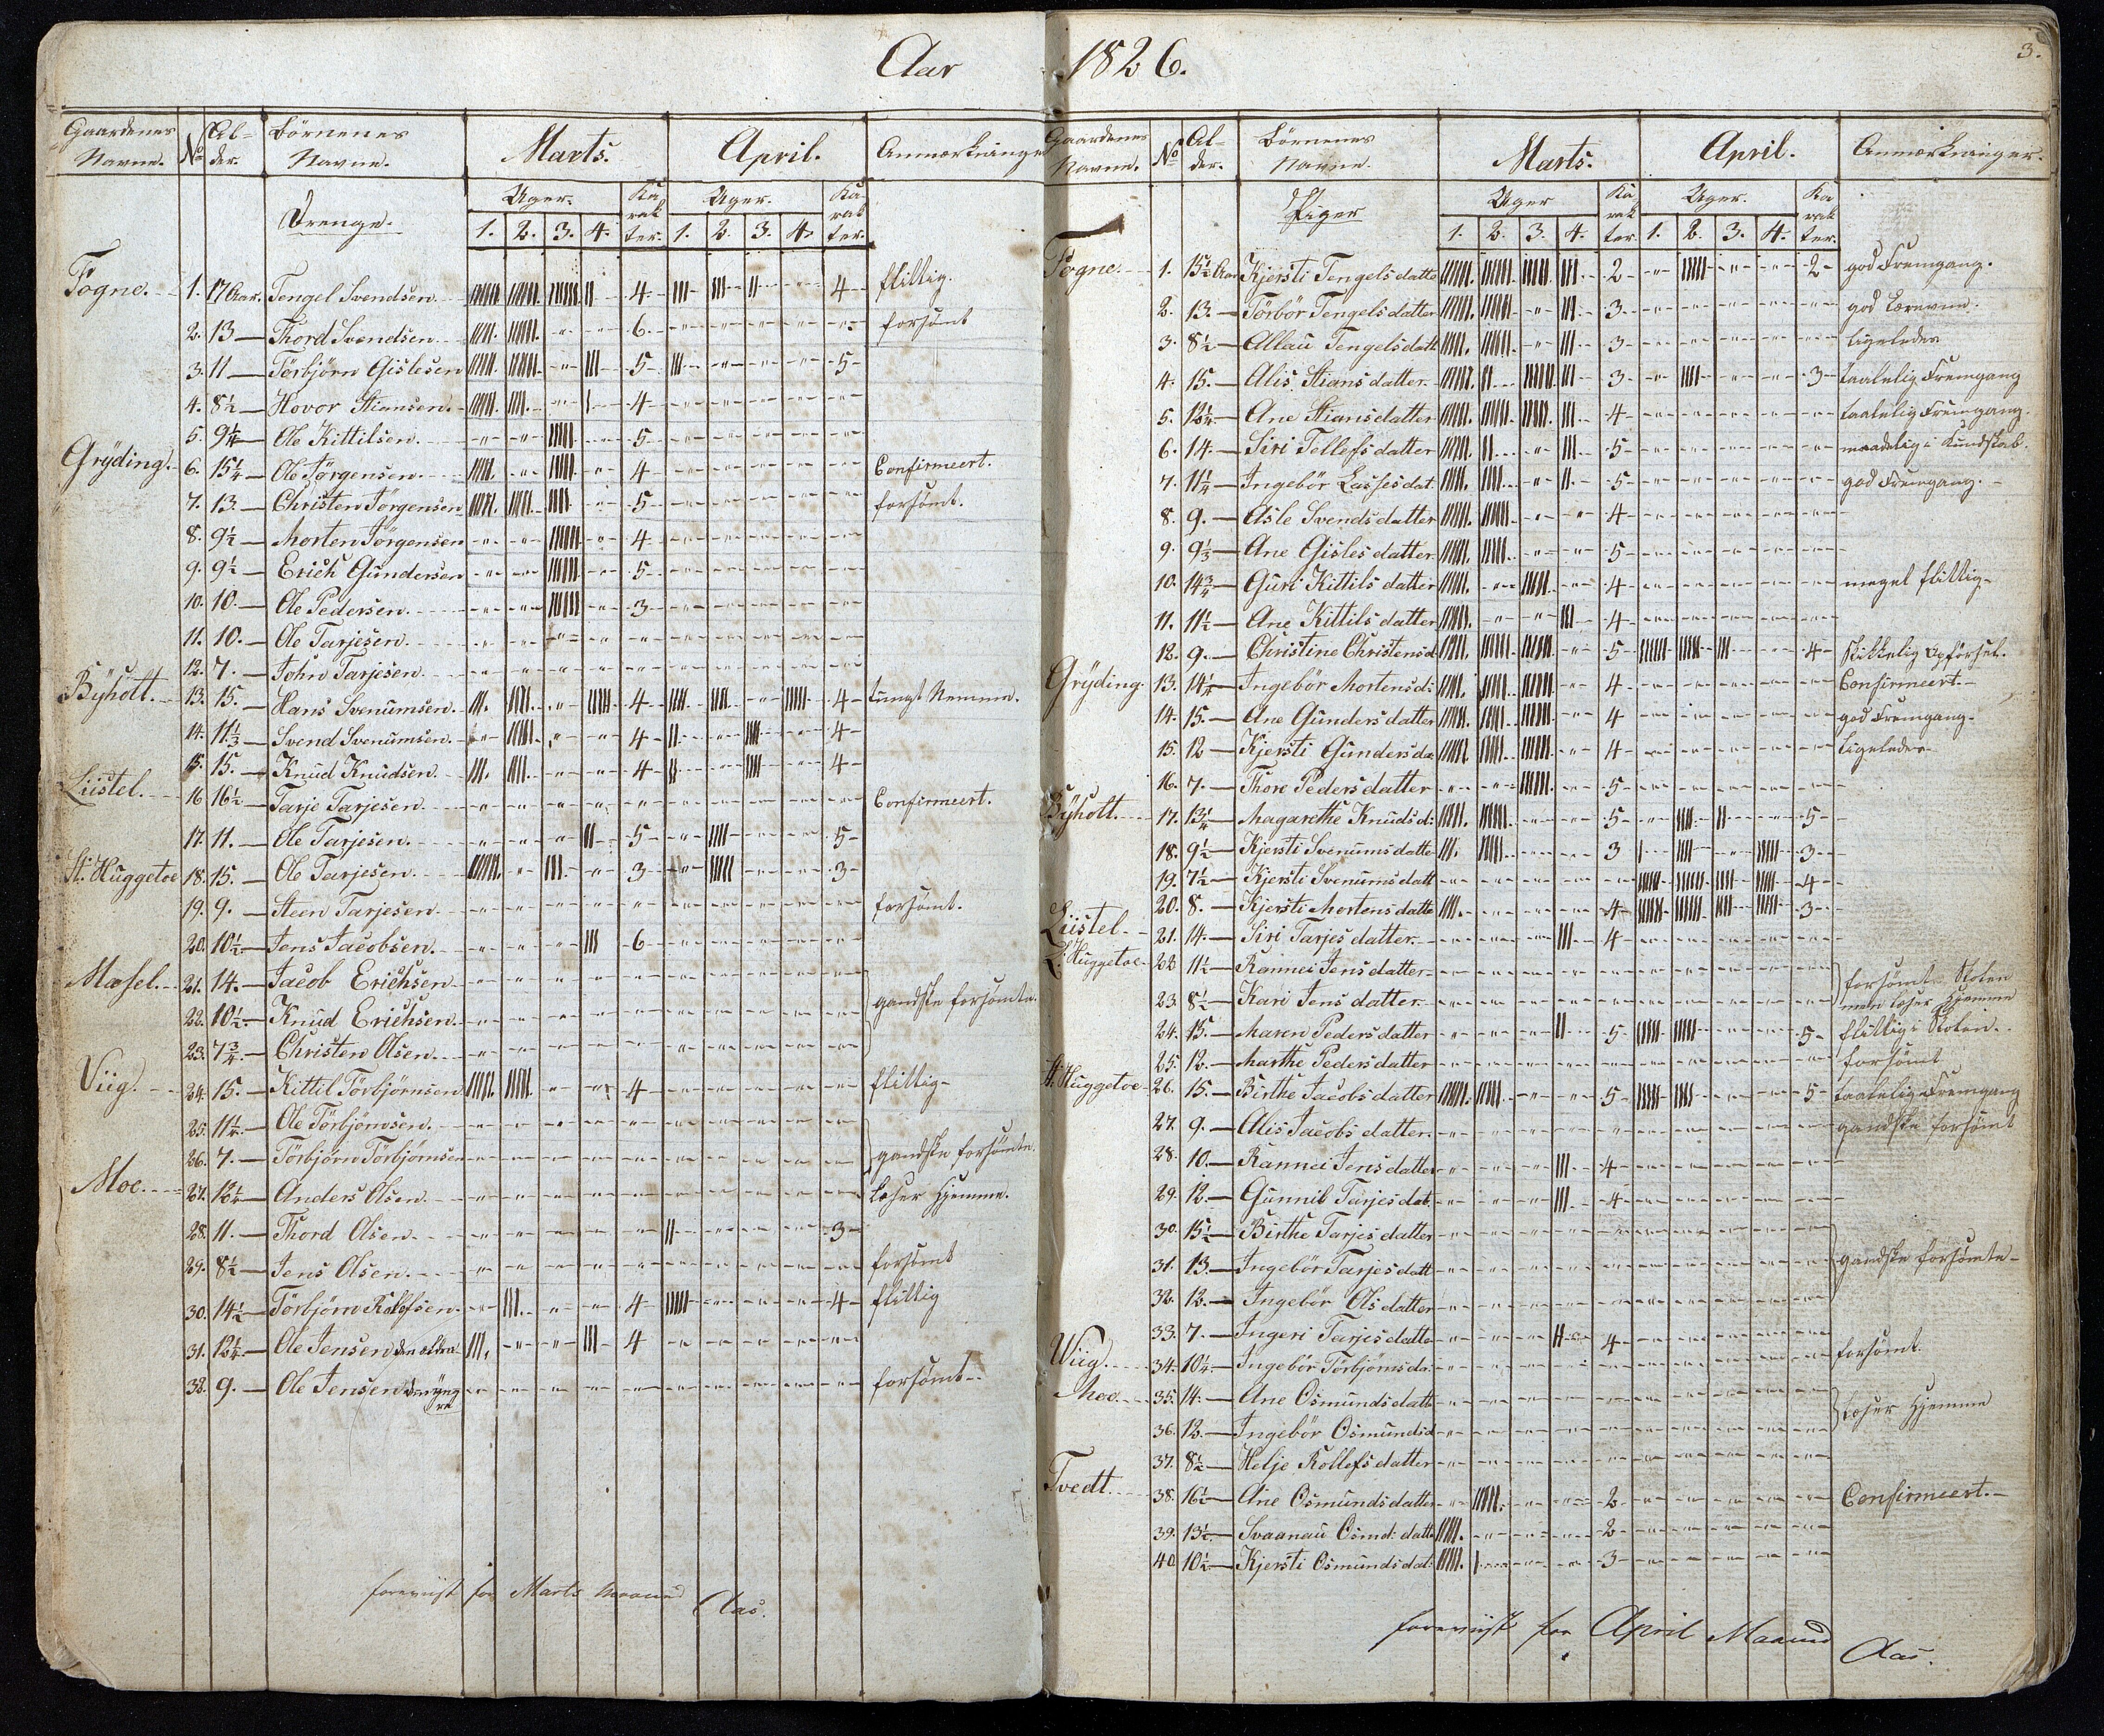 Aar 1826.
3.
Gaardenes Navne. No Alder. Börnenes Navne. Marts. April. Anmærkninger
Drenge. Uger. Karakter. Uger. Karakter.
1. 2. 3. 4. 1. 2. 3. 4.
Fogne. 1. 17 Aar. Tengel Svendsen. 4 4 flittig.
2. 13 Thord Svendsen 6. forsömt
3. 11 Törbjörn Gislesen 5 5
4. 8½ Hovor Stiansen. 4
5. 9¼ Ole Kittilsen. 5
Gryding. 6. 15¼ Ole Jörgensen. 4 Confirmeert.
7. 13. Christen Jörgensen 5 forsömt.
8. 9½ Morten Jörgensen 4
9. 9½ Erich Gundersen 5
10. 10. Ole Pedersen. 3
11. 10. Ole Tarjesen.
12. 7. John Tarjesen
Byholt. 13. 15. Hans Svenumsen. 4 4 tungt Nemme.
14. 11⅓ Svend Svenumsen. 4 4
15. 15. Knud Knudsen. 4 4
Liistel. 16 16½ Tarje Tarjesen Confirmeert.
17. 11. Ole Tarjesen. 5 5
St. Huggetoe 18. 15. Ole Tarjesen. 3 3
19. 9. Steen Tarjesen. forsömt.
20. 10½ Jens Jacobsen. 6
Mæsel. 21. 14. Jacob Erichsen
22. 10½ Knud Erichsen. gandske forsömte.
23. 7¾ Christen Olsen.
Viig. 24. 15. Kittil Törbjörnsen 4 flittig
25. 11½ Ole Törbjörnsen.
26. 7. Törbjörn Törbjörnsen gandske forsömte.
Moe. 27. 12½ Anders Olsen. læser Hjemme.
28. 11. Thord Olsen. 3
29. 8½ Jens Olsen. forsömt
30. 14½ Törbjörn Rollefsen. 4 4 flittig
31. 12¼ Ole Jensen den ældre 4
32. 9. Ole Jensen den yngre forsömt
foreviist for Marts Maaned Aas.
Gaardenes Navne. No Alder. Börnenes Navne. Marts. April. Anmærkninger.
Piger Uger Karakter. Uger. Karakter.
1. 2. 3. 4. 1. 2. 3. 4.
Fogne. 1. 15½ Aar Kjersti Tengelsdatter 2 2 god Fremgang.
2. 13. Törbör Tengelsdatter 3 god Lærevne.
3. 8½ Allau Tengelsdatt 3 Ligeledes
4. 15. Alis Stiansdatter 3 3 taalelig Fremgang
5. 12¼ Ane Stiansdatter 4 taalelig Fremgang.
6. 14. Siri Tellefsdatter 5 maadelig i Kundskab.
7. 11¼ Ingebör Lassesdat 5 god Fremgang.
8. 9. Asle Svendsdatter 4
9. 9⅓ Ane Gislesdatter 5
10. 14¾ Guri Kittilsdatter 4 meget flittig
11. 11½ Ane Kittilsdatter 4
12. 9. Christine Christensd 5 4 skikkelig Opförsel.
Gryding. 13. 14¼ Ingebör Mortensd: 4 Confirmeert.
14. 15. Ane Gundersdatter 4 god Fremgang
15. 12 Kjersti Gundersda 4 Ligeledes
16. 7. Thore Pedersdatter 5
Byholt. 17. 13¼ Magarethe Knudsd: 5 5
18. 9½ Kjersti Svenumsdatte 3 3
19. 7½ Kjersti Svenumsdatt 4
20. 8. Kjersti Mortensdatte 4 3
Liistel. 21. 14. Siri Tarjesdatter 4
L. Huggetoe 22 11½ Rannei Jensdatter forsömt Skolen
23 8½ Kari Jensdatter men læser Hjemme
24. 15. Maren Pedersdatter 5 5 flittig i Skolen.
25. 12. Marthe Pedersdatter forsömt
St. Huggetoe 26. 15. Birthe Jacobsdatter 5 5 taalelig Fremgang
27. 9. Alis Jacobsdatter. gandske forsömt
28. 10. Rannei Jensdatter 4
29. 12. Gunnil Tarjesdat. 4
30. 15½ Birthe Tarjesdatter
31. 13. Ingebör Tarjesdatt gandske forsömte
32. 12. Ingebör Olsdatter
33. 7. Ingeri Tarjesdatte 4
Viig. 34. 10¼ Ingebör Törbjörnsda: forsömt.
Moe. 35. 14. Ane Osmundsdatt
36. 12. Ingebör Osmundsd læser Hjemme
37. 8½ Helje Rollefsdatter
Tvedt. 38. 16½ Ane Osmundsdatter 2 Confirmeert.
39. 13½ Svaanau Osmd: datte 2
40 10½ Kjersti Osmundsdat: 3
foreviist for April Maaned Aas.